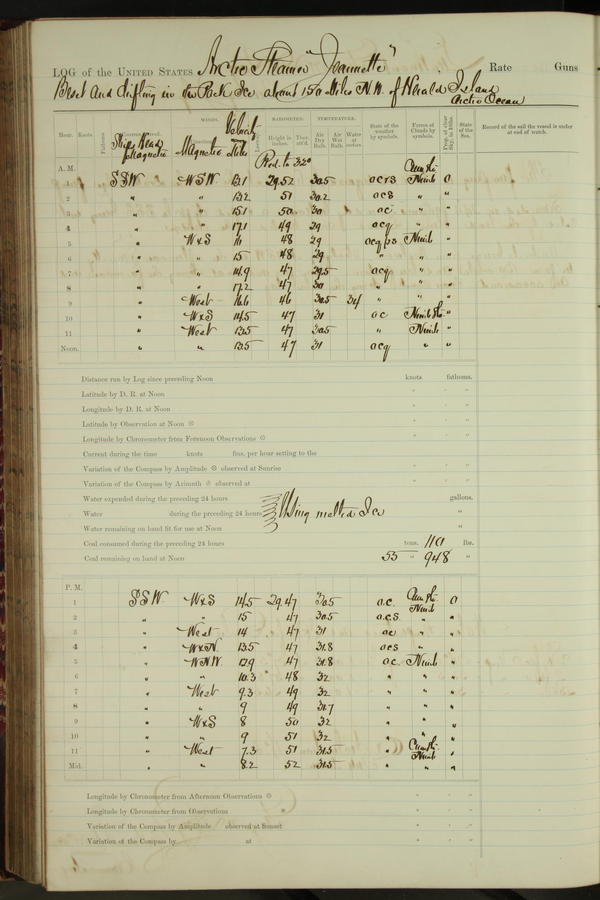 LOG of the UNITED STATES Arctic Steamer "Jeannette" Rate Guns
Beset and drifting in the Pack Ice about 150 Miles N.W. of Herald Island
Arctic Ocean
WINDS. Velocity BAROMETER. TEMPERATURE.
Hour. Knots Fathoms Ship's Head Magnetic Magnetic Miles Height in inches Ther. att'd. Air Dry Bulb. Air Wet Bulb. Water at surface. State of the weather by symbols. Forms of Clouds by symbols. Prop. of clear Sky, in 10ths. State of the Sea. Record of the sail the vessel is under at end of watch.
Red. to 32°
A. M. Cum Str
1 SSW WSW 12.1 29.52 30.5 ocrs Nimb 0
2 " " 13.2 51 30.2 ocs " "
3 " " 15.1 50 30 oc " "
4 " " 17.1 49 29 ocq " "
5 " WxS 16 48 29 ocqps Nimb "
6 " " 15 48 29 " " "
7 " " 14.9 47 29.5 ocq " "
8 " " 17.2 47 30 " " "
9 " West 16.6 46 30.5 " " "
10 " WxS 14.5 47 31 oc Nimb Str "
11 " West 13.5 47 30.5 " Nimb "
Noon. " " 13.5 47 31 ocq " "
Distance run by Log since preceding Noon knots fathoms.
Latitude by D. R. at Noon ° ' "
Longitude by D. R. at Noon ° ' "
Latitude by Observation at Noon ☉ ° ' "
Longitude by Chronometer from Forenoon Observations ☉ ° ' "
Current during the time knots fms. per hour setting to the
Variation of the Compass by Amplitude ☉ observed at Sunrise ° ' "
Variation of the Compass by Azimuth ☉ observed at ° ' "
Water expended during the preceding 24 hours gallons.
Water during the preceding 24 hours Using melted Ice "
Water remaining on hand fit for use at Noon "
Coal consumed during the preceding 24 hours tons. lbs.
Coal remaining on hand at Noon 53 " 948 "
P. M.
1 SSW WxS 14.5 29.47 30.5 o.c. Cum Str Nimb 0
2 " " 15 47 30.5 o.c.s " "
3 " West 14 47 31 oc " "
4 " WxN 13.5 47 31.8 ocs " "
5 " WNW 12.9 47 31.8 oc Nimb "
6 " " 10.3 48 32 " " "
7 " West 9.3 49 32 " " "
8 " " 9 49 31.7 " " "
9 " WxS 8 50 32 " " "
10 " " 9 51 32 " " "
11 " West 7.3 51 31.5 " Cum Str Nimb "
Mid. " " 8.2 52 31.5 " " "
Longitude by Chronometer from Afternoon Observations ☉ ° ' "
Longitude by Chronometer from Observations ° ' "
Variation of the Compass by Amplitude observed at Sunset ° ' "
Variation of the Compass by at ° ' "